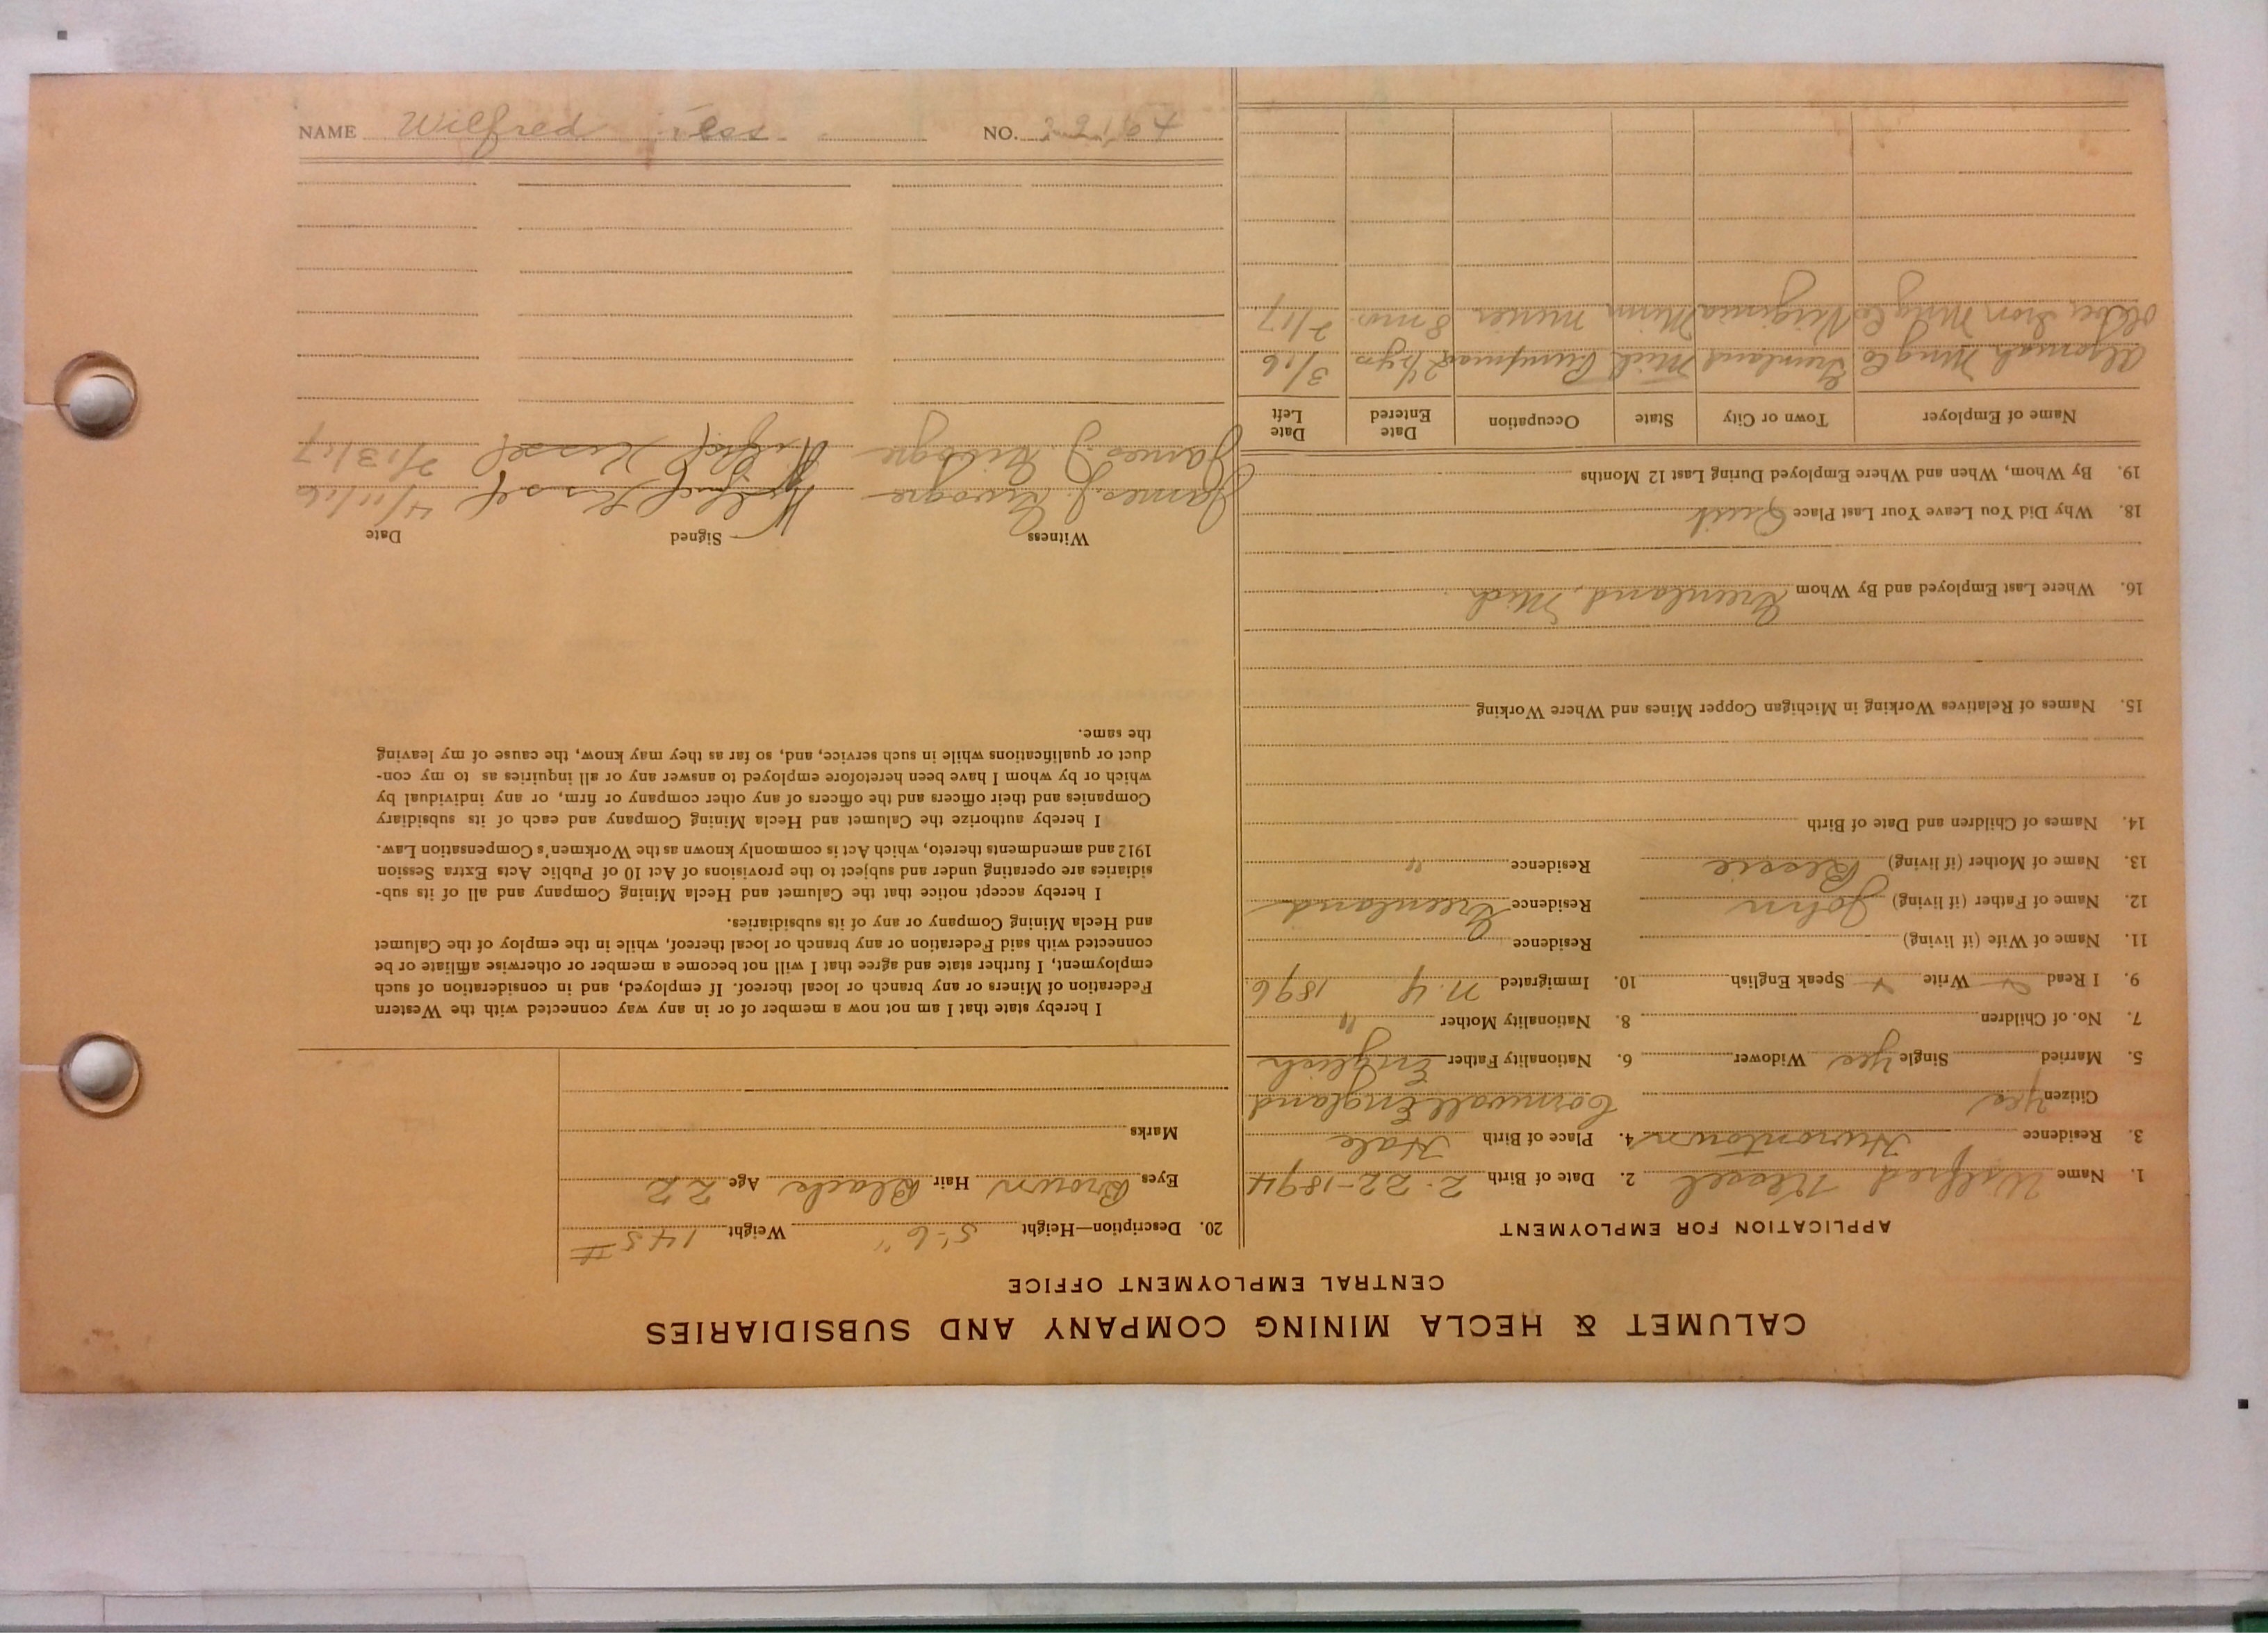 CALUMET & HECLA MINING COMPANY AND SUBSIDIARIES
CENTRAL EMPLOYMENT OFFICE
APPLICATION FOR EMPLOYMENT
1. Name Wilfred 2. Date of Birth 2-22-1894
3. Residence Hurontown 4. Place of Birth Hale
Citizen Yes Cornwall England
5. Married Single Yes Widower 6. Nationality Father English
7. No. of Children 8. Nationality Mother "
9. I Read Write Speak English 10. Immigrated N.Y 1896
11. Name of Wife (if living) Residence
12. Name of Father (if living) John Residence Greenland
13. Name of Mother (if living) Bessie Residence "
14. Names of Children and Date of Birth
15. Names of Relatives Working in Michigan Copper Mines and Where Working
16. Where Last Employed and By Whom Greenland, Mich
18. Why Did You Leave Your Last Place Quit
19. By Whom, When and Where Employed During Last 12 Months
Name of Employer Town or City State Occupation Date Entered Date Left
Algomah Mng Co Greenland Mich Pumpman 2 1/2 yrs 3/16
Oliver Iron Mng Co Virginia Minn Miner 8 mos. 2/17
20. Description—Height 5'-6" Weight 145 #
Eyes Brown Hair Black Age 22
Marks
I hereby state that I am not now a member of or in any way connected with the Western
Federation of Miners or any branch or local thereof. If employed, and in consideration of such
employment, I further state and agree that I will not become a member or otherwise affiliate or be
connected with said Federation or any branch or local thereof, while in the employ of the Calumet
and Hecla Mining Company or any of its subsidiaries.
I hereby accept notice that the Calumet and Hecla Mining Company and all of its sub-
sidiaries are operating under and subject to the provisions of Act 10 of Public Acts Extra Session
1912 and amendments thereto, which Act is commonly known as the Workmen's Compensation Law.
I hereby authorize the Calumet and Hecla Mining Company and each of its subsidiary
Companies and their officers and the officers of any other company or firm, or any individual by
which or by whom I have been heretofore employed to answer any or all inquiries as to my con-
duct or qualifications while in such service, and, so far as they may know, the cause of my leaving
the same.
Witness Signed Date
James J. 4/11/16
James J. 2/13/17
NAME Wilfred NO.